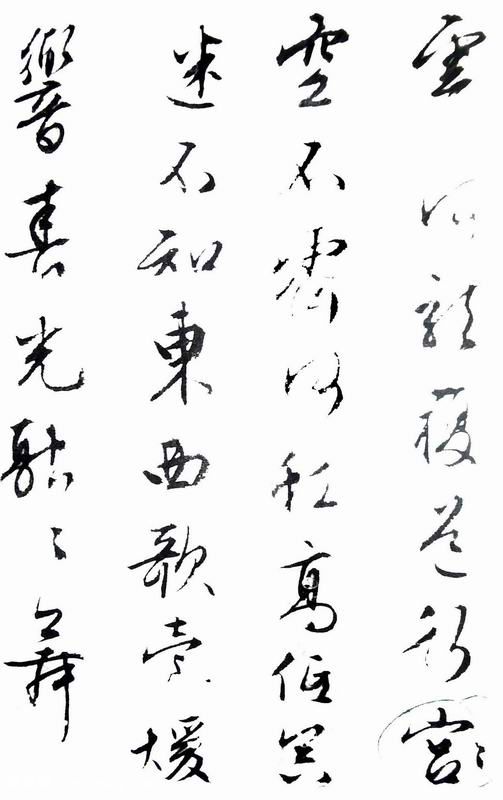 雲何龍複道行宮
空不霽何虹高低冥
迷不知東西歌臺煖
響春光融々舞